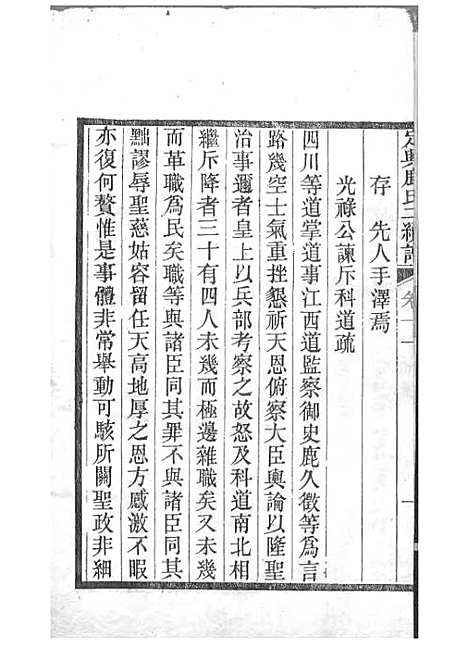 定興鹿氏二續譜
卷十
一
存 先人手澤焉
光祿公諫斥科道疏
四川等道掌道事江西道監察御史鹿久徵等為言
路幾空士氣重挫懇祈天恩俯察大臣輿論以隆聖
治事邇者皇上以兵部考察之故怒及科道南北相
繼斥降者三十有四人未幾而極邊雜職矣又未幾
而革職為民矣職等與諸臣同其罪不與諸臣同其
黜謬辱聖慈姑容留任天高地厚之恩方感激不暇
亦復何贅惟是事體非常舉動可駭所關聖政非細